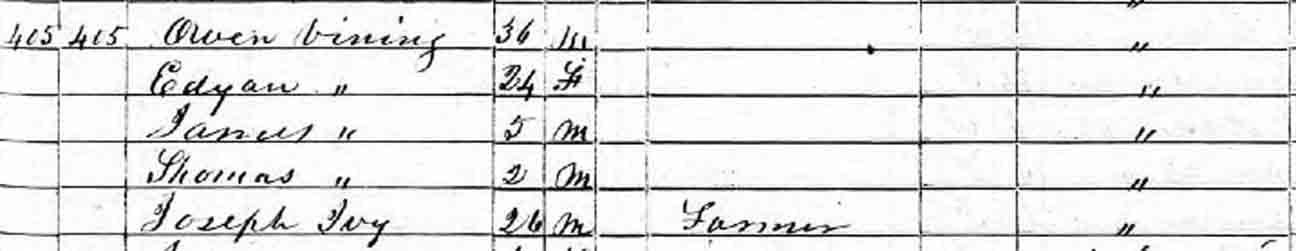 405 405 Owen Vining 36 m "
Edyan " 24 F "
James " 5 m "
Thomas " 2 m "
Joseph Ivy 26 m Farmer "